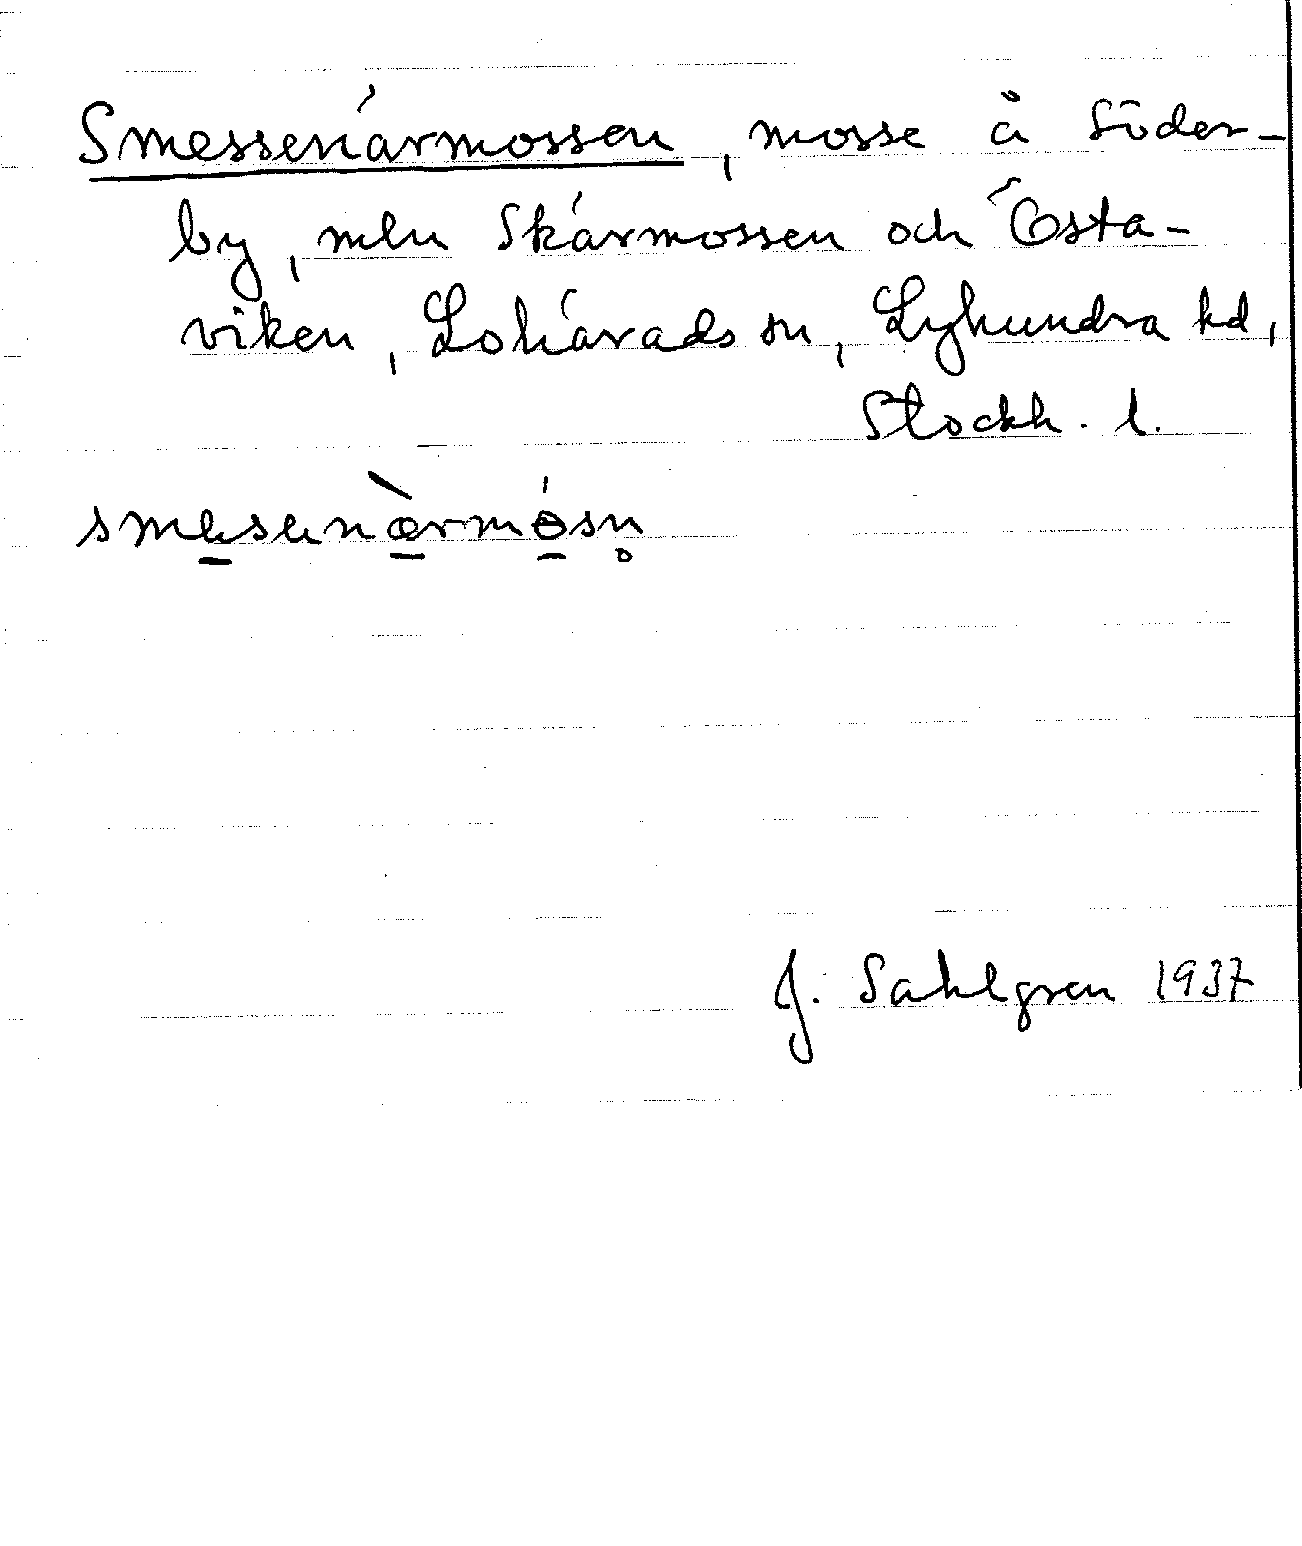 Smessenärmossen, mosse å Söder-
by, mln Skärmossen och Östa-
viken, Lohärads sn, Lyhundra hd,
Stockh. l.
smesenæ̀rmósn̥
J. Sahlgren 1937